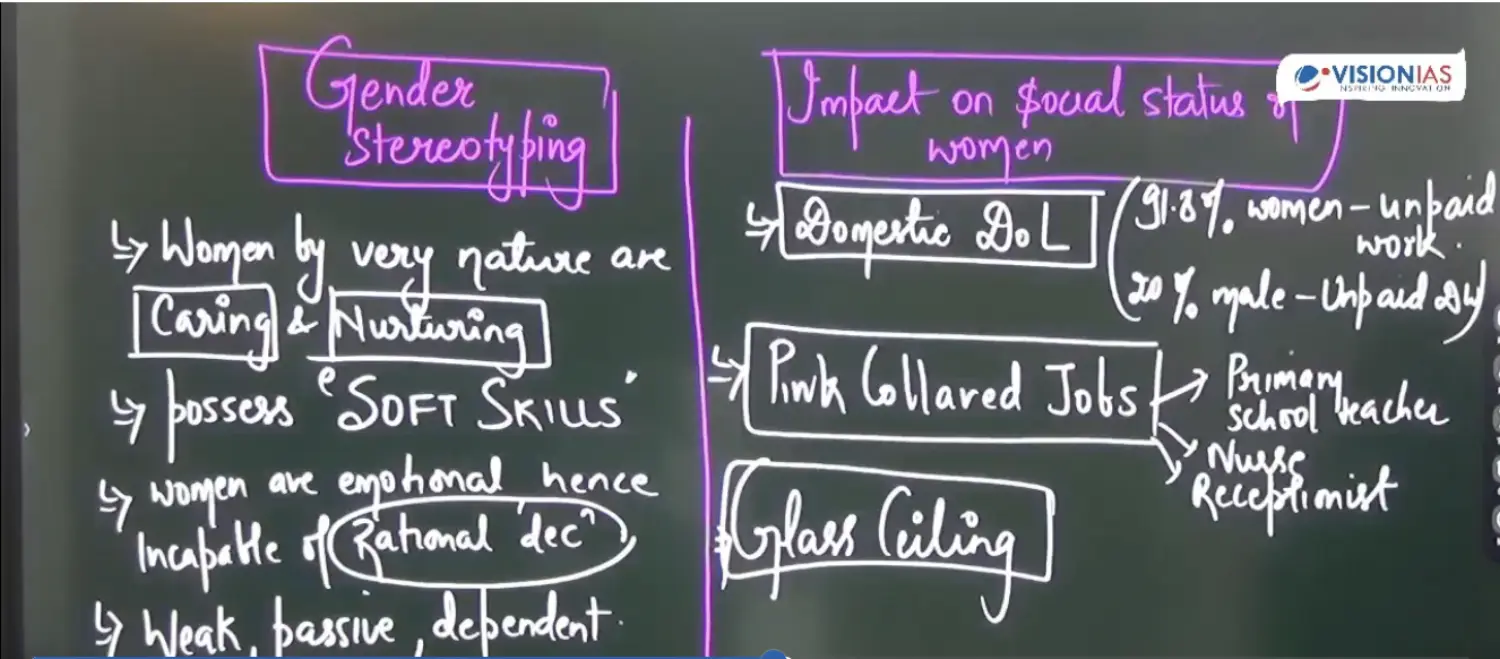 Gender
Stereotyping
↳ Women by very nature are
Caring & Nurturing
↳ possess "SOFT SKILLS"
↳ women are emotional hence
Incapable of Rational decⁿ
↳ Weak, passive, dependent.
VISIONIAS
INSPIRING INNOVATION
Impact on Social status of
women
↳ Domestic DoL (91.8% women - unpaid
work.
20% male - Unpaid DW)
↳ Pink Collared Jobs → Primary
school teacher
→ Nurse
→ Receptionist
Glass Ceiling